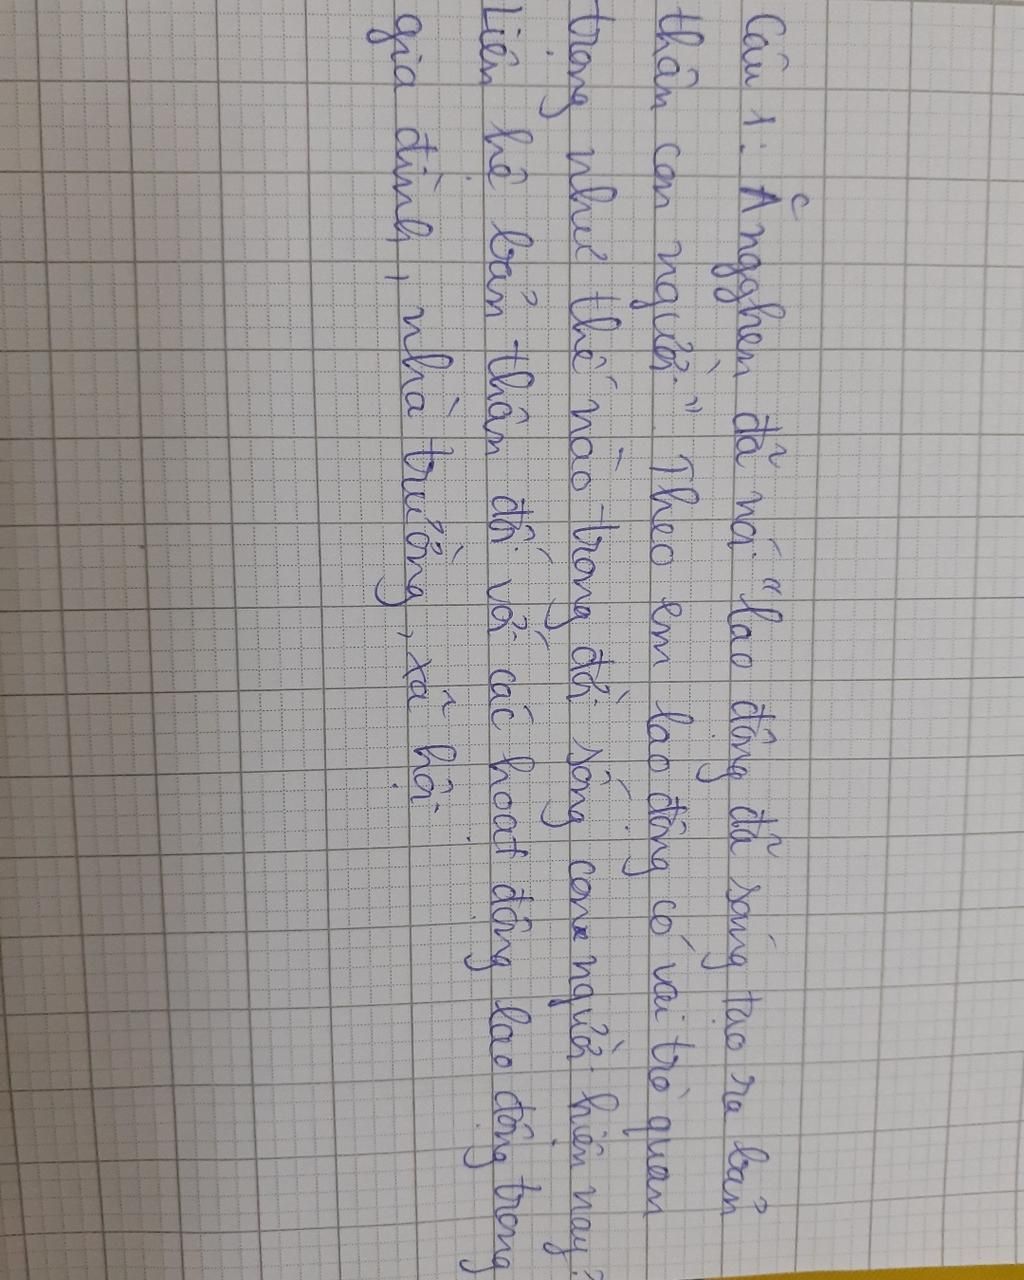 Câu 1: Ăngghen đã nói "lao động đã sáng tạo ra bản
thân con người" Theo em lao động có vai trò quan
trọng như thế nào trong đời sống con người hiện nay?
Liên hệ bản thân đối với các hoạt động lao động trong
gia đình, nhà trường, xã hội.